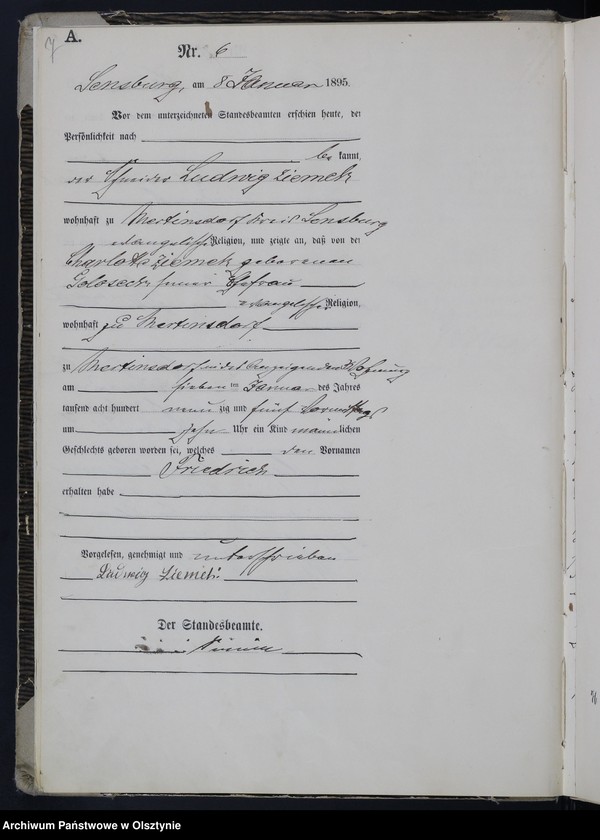 A.
Nr. 6
Sensburg, am 8 Januar 1895.
Vor dem unterzeichneten Standesbeamten erschien heute, der
Persönlichkeit nach
be kannt,
der Schneider Ludwig Ziemek
wohnhaft zu Mertinsdorf Kreis Sensburg
evangelischer Religion, und zeigte an, daß von der
Charlotte Ziemek geborenen
seiner Ehefrau
evangelischer Religion,
wohnhaft zu Mertinsdorf
zu Mertinsdorf in des Anzeigenden Wohnung
am sieben ten Januar des Jahres
tausend acht hundert neun zig und fünf Vormittags
um zehn Uhr ein Kind männlichen
Geschlechts geboren worden sei, welches den Vornamen
Friedrich
erhalten habe
Vorgelesen, genehmigt und unterschrieben
Ludwig Ziemek.
Der Standesbeamte.
Archiwum Państwowe w Olsztynie